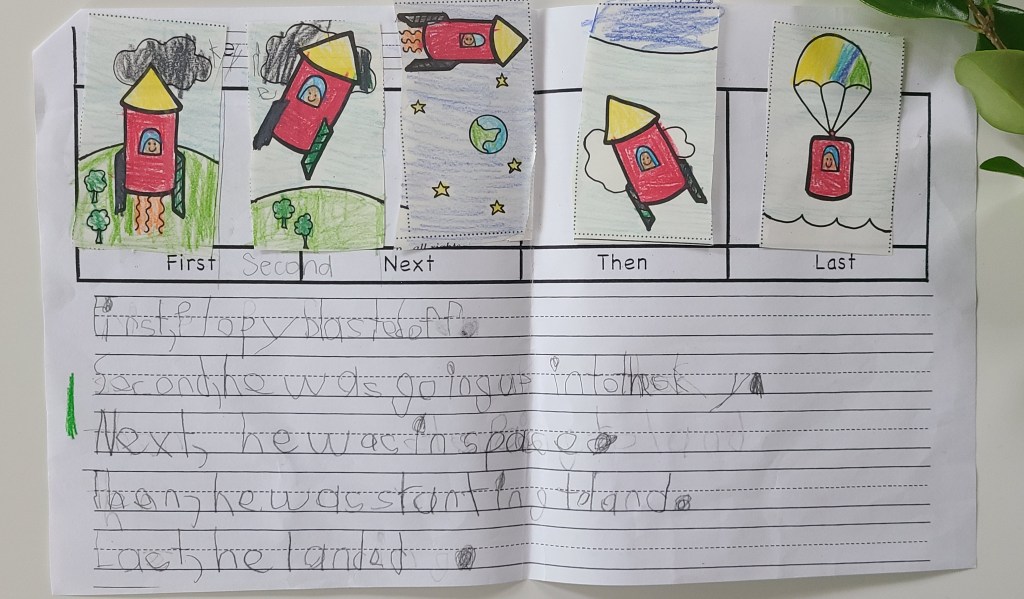 First Second Next Then Last
First, Flopy blastedoff.
Second, he was going up into the sky.
Next, he was in space.
Then, he was starting to land.
Last, he landed.